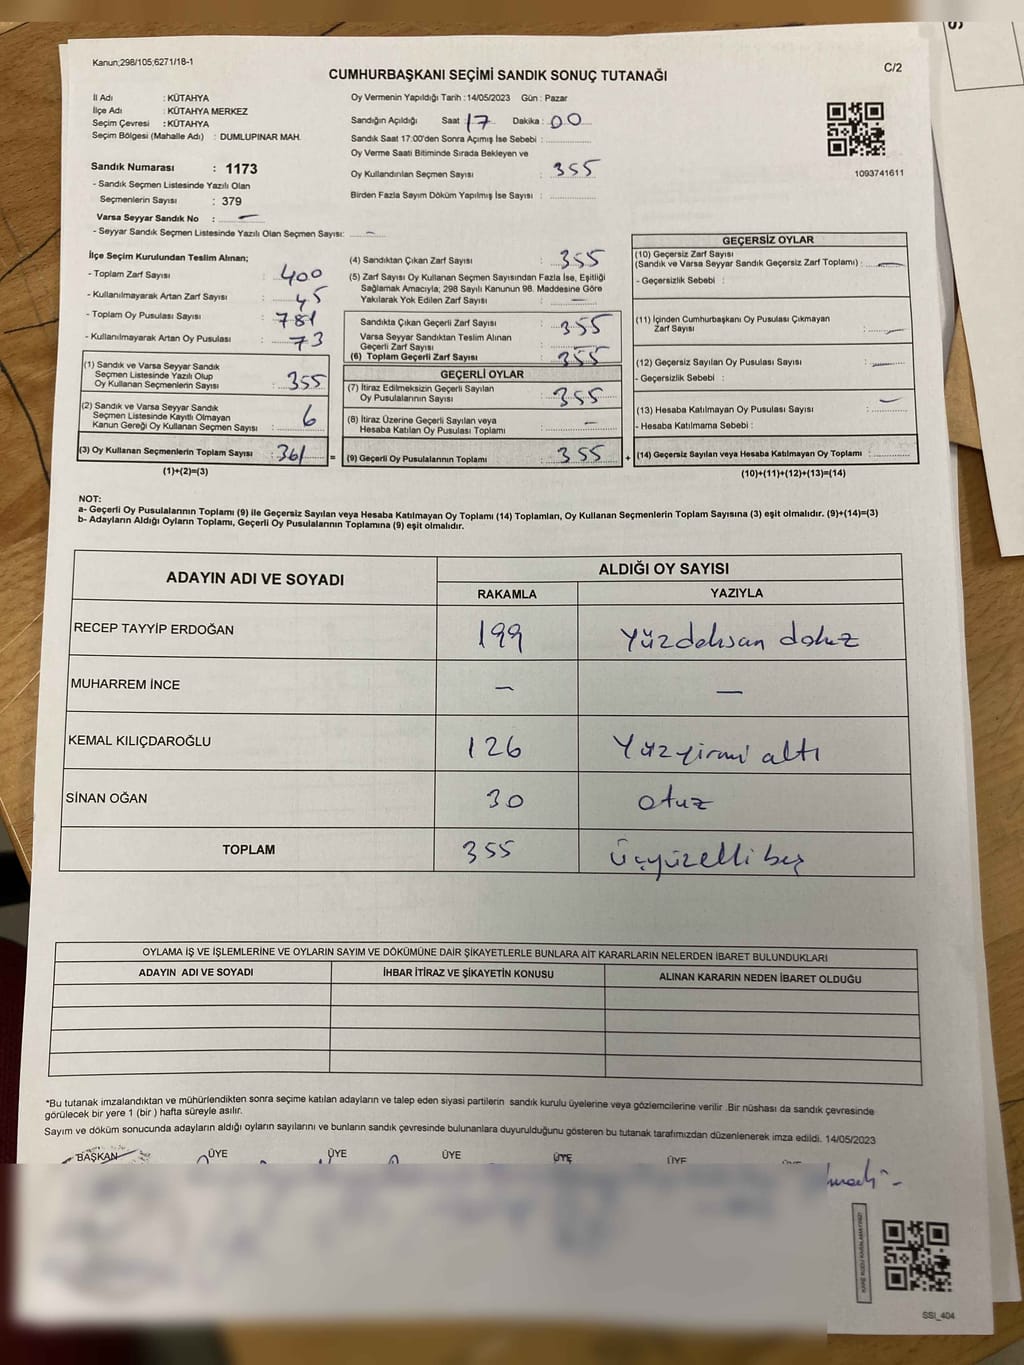 Kanun;298/105;6271/18-1
CUMHURBAŞKANI SEÇİMİ SANDIK SONUÇ TUTANAĞI
C/2
İl Adı : KÜTAHYA
İlçe Adı : KÜTAHYA MERKEZ
Seçim Çevresi : KÜTAHYA
Seçim Bölgesi (Mahalle Adı) : DUMLUPINAR MAH.
Sandık Numarası : 1173
- Sandık Seçmen Listesinde Yazılı Olan
Seçmenlerin Sayısı : 379
Varsa Seyyar Sandık No : —
- Seyyar Sandık Seçmen Listesinde Yazılı Olan Seçmen Sayısı: —
Oy Vermenin Yapıldığı Tarih :14/05/2023 Gün : Pazar
Sandığın Açıldığı Saat : 17 Dakika : 00
Sandık Saat 17.00'den Sonra Açımış İse Sebebi :
Oy Verme Saati Bitiminde Sırada Bekleyen ve
Oy Kullandırılan Seçmen Sayısı : 355
Birden Fazla Sayım Döküm Yapılmış İse Sayısı :
1093741611
İlçe Seçim Kurulundan Teslim Alınan;
- Toplam Zarf Sayısı : 400
- Kullanılmayarak Artan Zarf Sayısı : 45
- Toplam Oy Pusulası Sayısı : 781
- Kullanılmayarak Artan Oy Pusulası : 73
(1) Sandık ve Varsa Seyyar Sandık
Seçmen Listesinde Yazılı Olup
Oy Kullanan Seçmenlerin Sayısı : 355
(2) Sandık ve Varsa Seyyar Sandık
Seçmen Listesinde Kayıtlı Olmayan
Kanun Gereği Oy Kullanan Seçmen Sayısı : 6
(3) Oy Kullanan Seçmenlerin Toplam Sayısı : 361 =
(1)+(2)=(3)
(4) Sandıktan Çıkan Zarf Sayısı : 355
(5) Zarf Sayısı Oy Kullanan Seçmen Sayısından Fazla İse, Eşitliği
Sağlamak Amacıyla; 298 Sayılı Kanunun 98. Maddesine Göre
Yakılarak Yok Edilen Zarf Sayısı : —
Sandıkta Çıkan Geçerli Zarf Sayısı : 355
Varsa Seyyar Sandıktan Teslim Alınan
Geçerli Zarf Sayısı :
(6) Toplam Geçerli Zarf Sayısı : 355
GEÇERLİ OYLAR
(7) İtiraz Edilmeksizin Geçerli Sayılan
Oy Pusulalarının Sayısı : 355
(8) İtiraz Üzerine Geçerli Sayılan veya
Hesaba Katılan Oy Pusulası Toplamı : —
(9) Geçerli Oy Pusulalarının Toplamı : 355 +
GEÇERSİZ OYLAR
(10) Geçersiz Zarf Sayısı
(Sandık ve Varsa Seyyar Sandık Geçersiz Zarf Toplamı) : —
- Geçersizlik Sebebi :
(11) İçinden Cumhurbaşkanı Oy Pusulası Çıkmayan
Zarf Sayısı : —
(12) Geçersiz Sayılan Oy Pusulası Sayısı : —
- Geçersizlik Sebebi :
(13) Hesaba Katılmayan Oy Pusulası Sayısı : —
- Hesaba Katılmama Sebebi :
(14) Geçersiz Sayılan veya Hesaba Katılmayan Oy Toplamı :
(10)+(11)+(12)+(13)=(14)
NOT:
a- Geçerli Oy Pusulalarının Toplamı (9) ile Geçersiz Sayılan veya Hesaba Katılmayan Oy Toplamı (14) Toplamları, Oy Kullanan Seçmenlerin Toplam Sayısına (3) eşit olmalıdır. (9)+(14)=(3)
b- Adayların Aldığı Oyların Toplamı, Geçerli Oy Pusulalarının Toplamına (9) eşit olmalıdır.
ADAYIN ADI VE SOYADI
ALDIĞI OY SAYISI
RAKAMLA YAZIYLA
RECEP TAYYİP ERDOĞAN 199 Yüzdoksan dokuz
MUHARREM İNCE — —
KEMAL KILIÇDAROĞLU 126 Yüzyirmi altı
SİNAN OĞAN 30 otuz
TOPLAM 355 Üçyüzelli beş
OYLAMA İŞ VE İŞLEMLERİNE VE OYLARIN SAYIM VE DÖKÜMÜNE DAİR ŞİKAYETLERLE BUNLARA AİT KARARLARIN NELERDEN İBARET BULUNDUKLARI
ADAYIN ADI VE SOYADI İHBAR İTİRAZ VE ŞİKAYETİN KONUSU ALINAN KARARIN NEDEN İBARET OLDUĞU
*Bu tutanak imzalandıktan ve mühürlendikten sonra seçime katılan adayların ve talep eden siyasi partilerin sandık kurulu üyelerine veya gözlemcilerine verilir .Bir nüshası da sandık çevresinde
görülecek bir yere 1 (bir ) hafta süreyle asılır.
Sayım ve döküm sonucunda adayların aldığı oyların sayılarını ve bunların sandık çevresinde bulunanlara duyurulduğunu gösteren bu tutanak tarafımızdan düzenlenerek imza edildi. 14/05/2023
BAŞKAN ÜYE ÜYE ÜYE ÜYE ÜYE
SSI_404